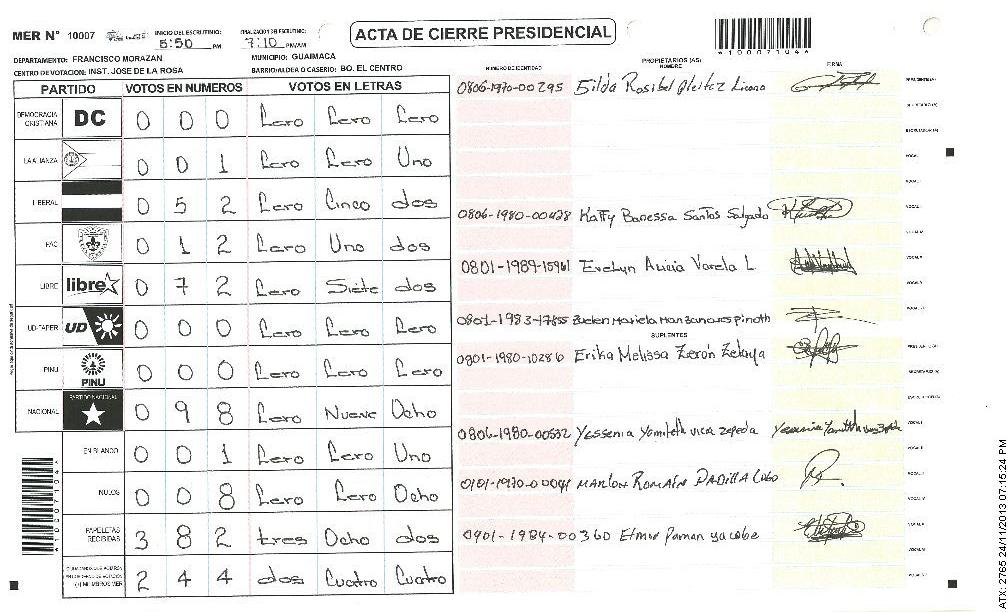 MER Nº 10007
INICIO DEL ESCRUTINIO:
5:50 PM
7:10 PM/AM
ACTA DE CIERRE PRESIDENCIAL
*100071044*
DEPARTAMENTO: FRANCISCO MORAZAN
MUNICIPIO: GUAIMACA
CENTRO DE VOTACION: INST. JOSE DE LA ROSA
BARRIO/ALDEA O CASERIO: BO. EL CENTRO
NUMERO DE IDENTIDAD
PROPIETARIOS (AS)
NOMBRE
FIRMA
PARTIDO VOTOS EN NUMEROS VOTOS EN LETRAS
DEMOCRACIA CRISTIANA DC 0 0 0 Cero Cero Cero
LA ALIANZA 0 0 1 Cero Cero Uno
LIBERAL 0 5 2 Cero Cinco dos
PAC 0 1 2 Cero Uno dos
LIBRE libre 0 7 2 Cero Siete dos
UD-FAPER UD 0 0 0 Cero Cero Cero
PINU PINU 0 0 0 Cero Cero Cero
NACIONAL PARTIDO NACIONAL 0 9 8 Cero Nueve Ocho
EN BLANCO 0 0 1 Cero Cero Uno
NULOS 0 0 8 Cero Cero Ocho
PAPELETAS RECIBIDAS 3 8 2 tres Ocho dos
2 4 4 dos Cuatro Cuatro
0806-1970-00295 Gilda Rosibel
0806-1980-00428 Katty Banessa Santos Salgado
0801-1989-15961 Evelyn Alicia Varela L.
0801-1983-17855 Suelen Mariela Manzanares Pinoth
SUPLENTES
0801-1980-10286 Erika Melissa Zerón Zelaya
0806-1980-00532 Yessenia Yamileth zepeda
0101-1970-00041 MARLON ROMAIN PADILLA Lobo
0901-1984-00360
*100071044*
ATX: 2765 24/11/2013 07:15:24 PM